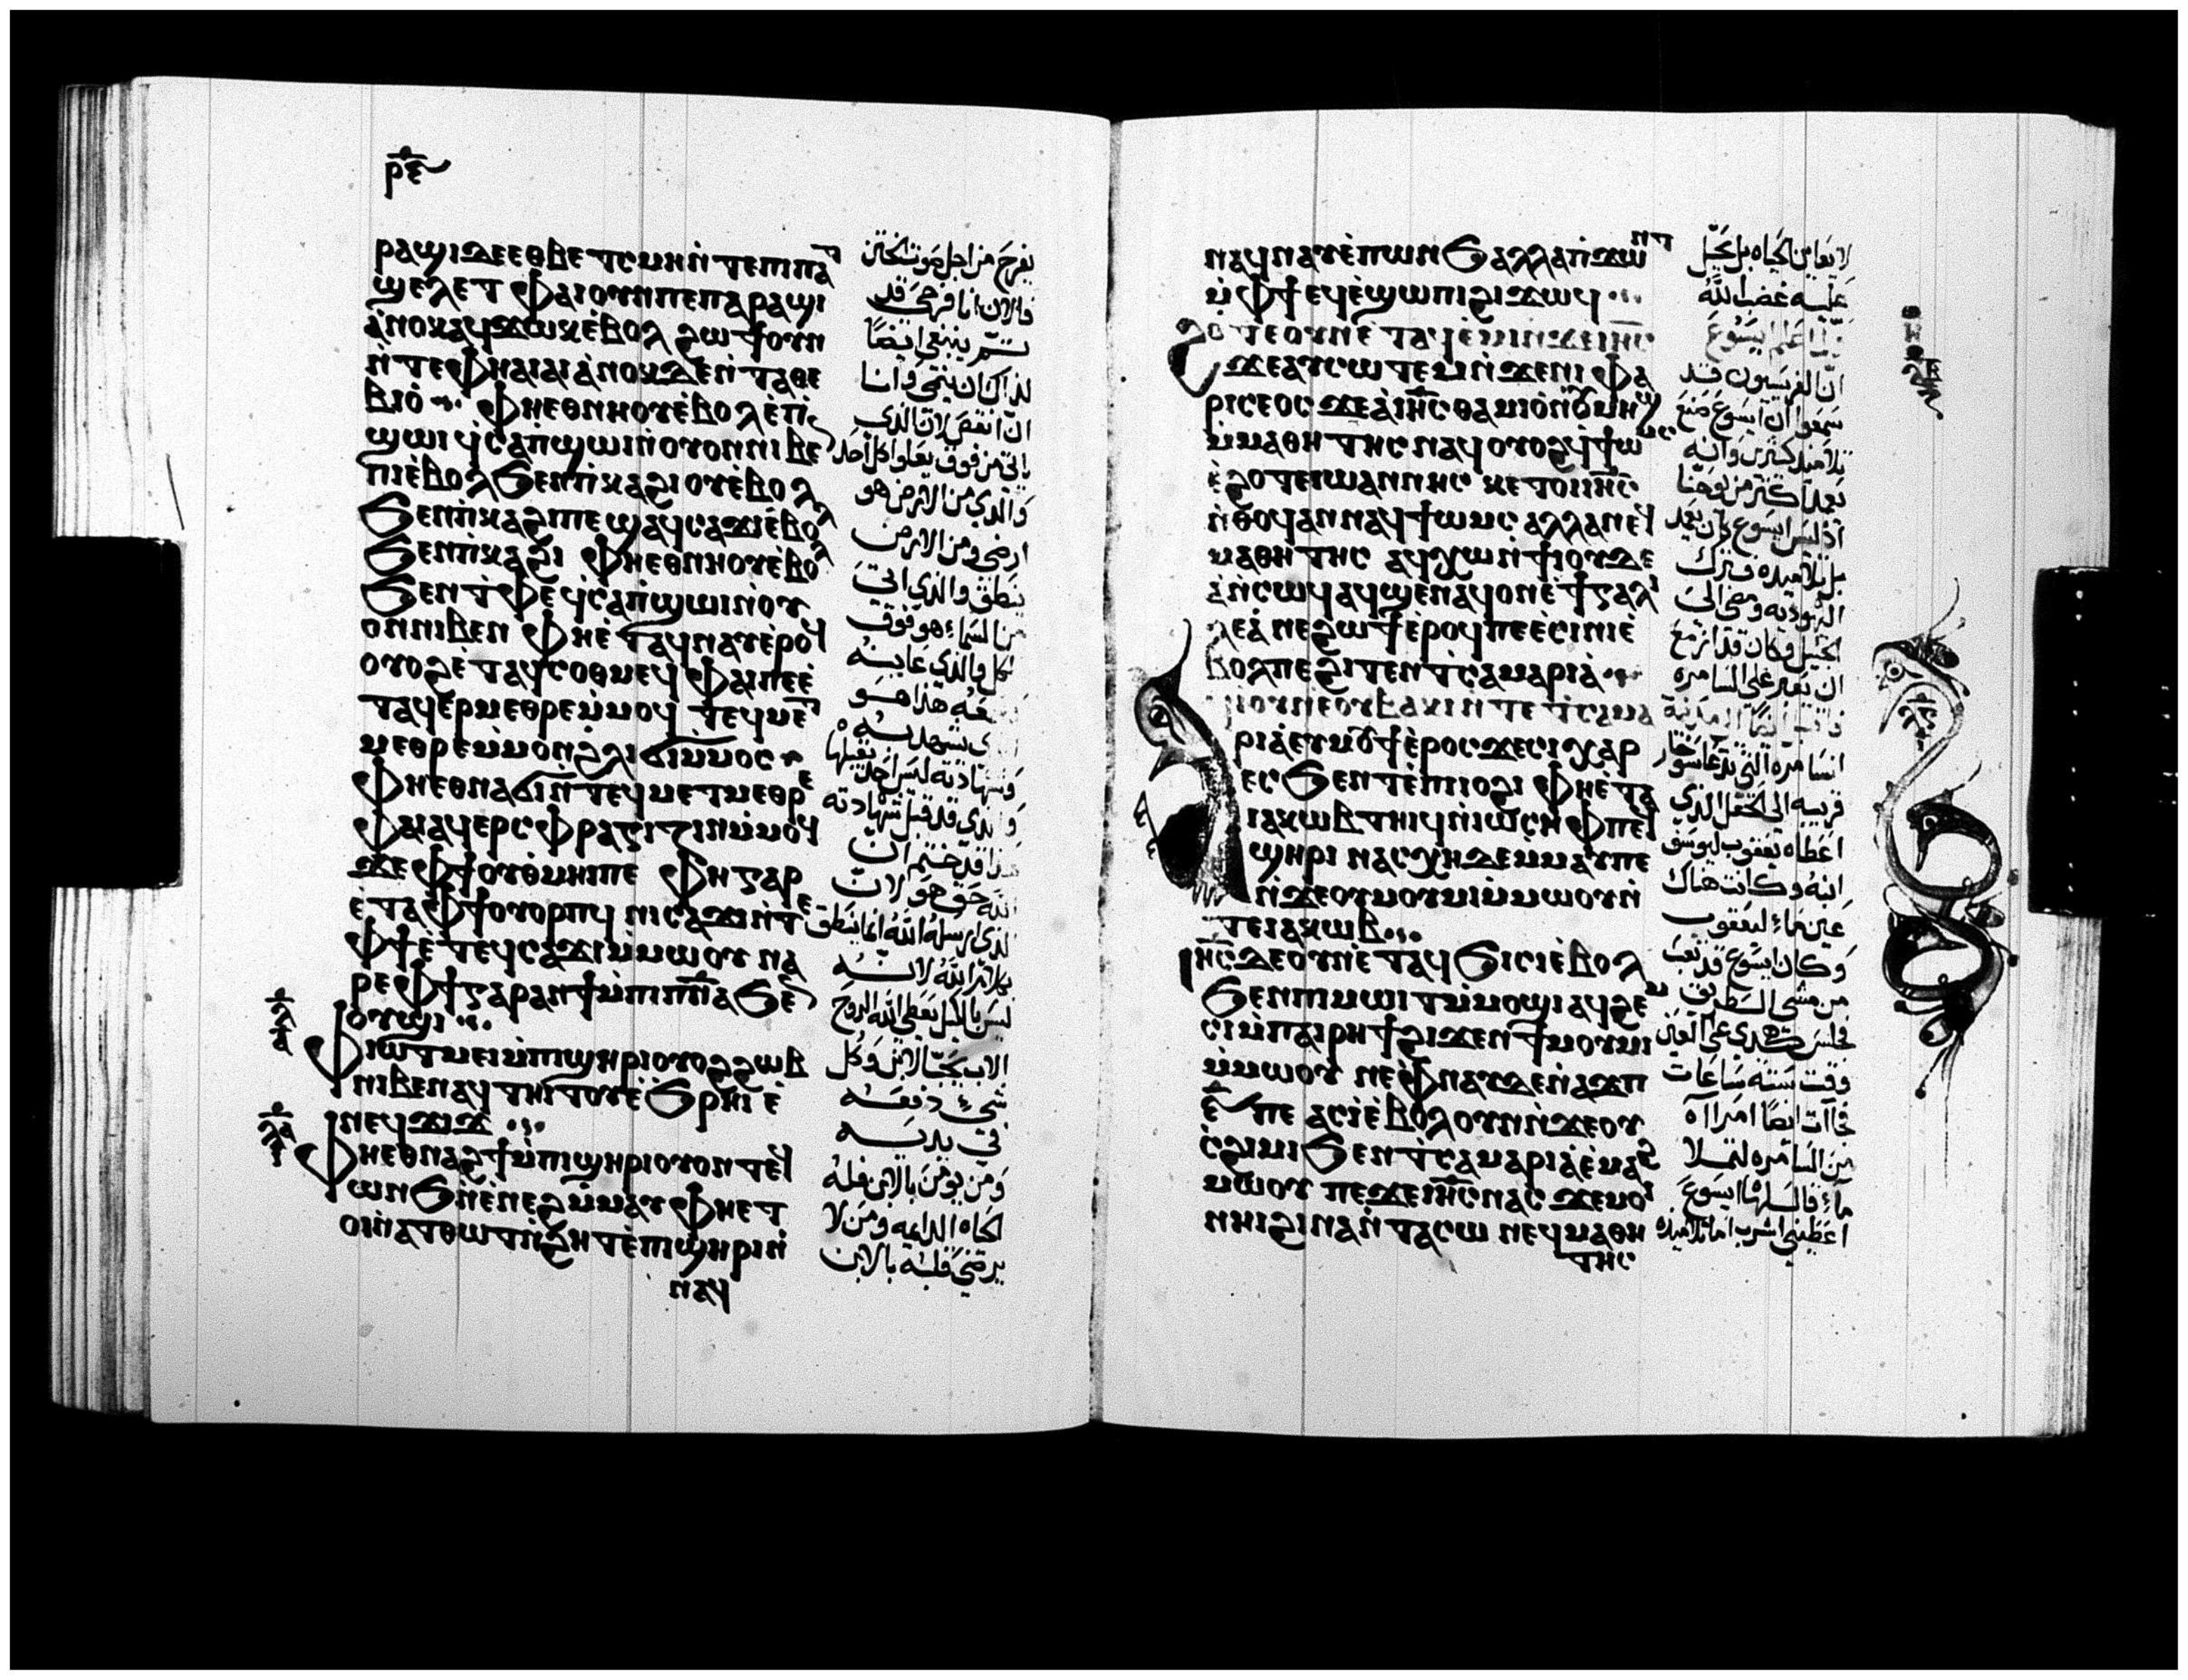 ⲣⲉ
ⲣⲁϣⲓ ϫⲉ ⲉⲑⲃⲉ ⲧⲥⲙⲏ ⲛ̀ⲧⲉ ⲡⲓⲡⲁⲧ
ϣⲉⲗⲉⲧ ⲫⲁⲓ ⲟⲩⲛ ⲡⲉ ⲡⲁⲣⲁϣⲓ
ⲁ̀ⲛⲟⲕ ⲁϥϫⲱⲕ ⲉ̀ⲃⲟⲗ ϩⲱϯ ⲟⲩⲛ
ⲛ̀ⲧⲉ ⲫⲏ ⲁⲓⲁⲓ ⲁ̀ⲛⲟⲕ ϫⲉ ⲛ̀ⲧⲁⲑⲉ
ⲃⲓⲟ̀ ⲫⲏ ⲉⲑⲛⲏⲟⲩ ⲉ̀ⲃⲟⲗ ⲉ̀ⲡ
ϣⲱⲓ ϥ̀ⲥⲁⲡ̀ϣⲱⲓ ⲛ̀ⲟⲩⲟⲛ ⲛⲓⲃⲉ
ⲡⲓⲉ̀ⲃⲟⲗ ϧⲉⲛ ⲡ̀ⲕⲁϩⲓ ⲟⲩⲉ̀ⲃⲟⲗ
ϧⲉⲛ ⲡ̀ⲕⲁϩⲓ ⲡⲉ ϣⲁϥⲥⲁϫⲓ ⲉ̀ⲃⲟⲗ
ϧⲉⲛ ⲡ̀ⲕⲁϩⲓ ⲫⲏ ⲉⲑⲛⲏⲟⲩ ⲉ̀ⲃⲟⲗ
ϧⲉⲛ ⲧ̀ⲫⲉ ϥ̀ⲥⲁⲡ̀ϣⲱⲓ ⲛ̀ⲟⲩ
ⲟⲛ ⲛⲓⲃⲉⲛ ⲫⲏ ⲉ̀ⲧⲁϥⲛⲁⲩ ⲉ̀ⲣⲟϥ
ⲟⲩⲟϩ ⲉ̀ⲧⲁϥⲥⲟⲑⲙⲉϥ ⲫⲁⲓ ⲡⲉ ⲉ̀
ⲧⲁϥⲉⲣⲙⲉⲑⲣⲉ ⲙ̀ⲙⲟϥ ⲧⲉϥⲙⲉⲧ
ⲙⲉⲑⲣⲉ ⲙ̀ⲙⲟⲛ ϩⲗⲓ ϭⲓ ⲙ̀ⲙⲟⲥ
ⲫⲏ ⲉⲑⲛⲁϭⲓ ⲛ̀ⲧⲉϥⲙⲉⲧⲙⲉⲑⲣⲉ
ⲫⲁⲓ ⲁϥⲉⲣⲥⲫⲣⲁⲅⲓⲍⲓⲛ ⲙ̀ⲙⲟϥ
ϫⲉ ⲫϯ ⲟⲩⲑ̀ⲙⲏⲓ ⲡⲉ ⲫⲏ ⲅⲁⲣ
ⲉ̀ⲧⲁ ⲫϯ ⲟⲩⲟⲣⲡϥ ⲛⲓⲥⲁϫⲓ ⲛ̀ⲧⲉ
ⲫϯ ⲉ̀ⲧⲉϥⲥⲁϫⲓ ⲙ̀ⲙⲱⲟⲩ ⲛⲁ
ⲣⲉ ⲫϯ ⲅⲁⲣ ⲁⲛ ϯ ⲙ̀ⲡⲓⲡ̅ⲛ̅ⲁ̅ ϧⲉⲛ
ⲟⲩϣⲓ
ⲗ̅ⲅ̅
ⲫⲓⲱⲧ ⲙⲉⲓ ⲙ̀ⲡⲓϣⲏⲣⲓ ⲟⲩⲟϩ ϩⲱⲃ
ⲛⲓⲃⲉⲛ ⲁϥⲧⲏⲓⲧⲟⲩ ⲉ̀ϧ̀ⲣⲏⲓ ⲉ̀
ⲛⲉϥϫⲓϫ
ⲗ̅ⲇ̅
ⲫⲏ ⲉⲑⲛⲁϩϯ ⲙ̀ⲡⲓϣⲏⲣⲓ ⲟⲩⲟⲛⲧⲉϥ
ⲱⲛϧ ⲛ̀ⲉⲛⲉϩ ⲙ̀ⲙⲁⲩ ⲫⲏ ⲉⲧ
ⲟⲓ ⲛ̀ⲁⲧⲑⲱⲧ ⲛ̀ϩⲏⲧ ⲉ̀ⲡⲓϣⲏⲣⲓ ⲛ̀
ⲛⲁϥ
يفرح من اجل صوت الختن
فالان انا فرحي قد
تم ينبغي ايضا
لذاك ان ينمي وانا
ان انقص لان الذي
ياتي من فوق يعلوا كل احد
والذي من الارض هو
ارضي ومن الارض
ينطق والذي اتي
من السماء هو فوق
كل والذي عاينه
هذا هو
يشهد به
وشهادته ليس احد يقبلها
والذي قد قبل شهادته
هذا قد ختم ان
الله حق هو لان
الذي ارسله الله انما ينطق
بكلام الله لانه
ليس بالكيل يعطي الله الروح
الاب يحب الابن وكل
شيء دفعه
في يديه
ومن يومن بالابن فله
الحياه الدايمه ومن لا
يرضي قلبه بالابن
ⲛⲁϥⲛⲁⲩ ⲉ̀ⲡⲱⲛϧ ⲁⲗⲗⲁ ⲡ̀ϫⲱⲛⲧ
ⲙ̀ⲫϯ ⲉϥⲉ̀ϣⲱⲡⲓ ϩⲓϫⲱϥ
ϩⲟⲧⲉ ⲟⲩⲛ ⲉ̀ⲧⲁϥⲉ̀ⲙⲓ ⲛ̀ϫⲉ ⲓⲏ̅ⲥ̅
ϫⲉ ⲁⲩⲥⲱⲧⲉⲙ ⲛ̀ϫⲉ ⲛⲓⲫⲁ
ⲣⲓⲥⲉⲟⲥ ϫⲉ ⲁ̀ ⲓⲏ̅ⲥ̅ ⲑⲁⲙⲓⲟ̀ ⲛ̀ⲟⲩⲙⲏϣ
ⲙ̀ⲙⲁⲑⲏⲧⲏⲥ ⲛⲁϥ ⲟⲩⲟϩ ϥ̀ϯⲱⲙⲥ
ⲉ̀ϩⲟⲧⲉ ⲓⲱⲁⲛⲛⲏⲥ ⲕⲉⲧⲟⲓ ⲓⲏ̅ⲥ̅
ⲛ̀ⲑⲟϥ ⲁⲛ ⲛⲁϥϯⲱⲙⲥ ⲁⲗⲗⲁ ⲛⲉϥ
ⲙⲁⲑⲏⲧⲏⲥ ⲁϥⲭⲱ ⲛ̀ϯⲓⲟⲩⲇⲉ
ⲁ̀ ⲛ̀ⲥⲱϥ ⲁϥϣⲉⲛⲁϥ ⲟⲛ ⲉ̀ϯⲅⲁⲗⲓ
ⲗⲉⲁ̀ ⲛⲉ ϩⲱϯ ⲉ̀ⲣⲟϥ ⲡⲉ ⲉ̀ⲥⲓⲛⲓ ⲉ̀
ⲃⲟⲗ ⲡⲉ ϩⲓⲧⲉⲛ ⲧ̀ⲥⲁⲙⲁⲣⲓⲁ̀
ⲁϥⲓ̀ ⲟⲩⲛ ⲉ̀ⲟⲩⲃⲁⲕⲓ ⲛ̀ⲧⲉ ⲧ̀ⲥⲁⲙⲁ
ⲣⲓⲁ̀ ⲉⲩⲙⲟⲩϯ ⲉ̀ⲣⲟⲥ ϫⲉ ⲥⲓⲭⲁⲣ
ⲉⲥϧⲉⲛⲧ ⲉ̀ⲡⲓⲟϩⲓ ⲫⲏ ⲉ̀ⲧⲁ
ⲓⲁⲕⲱⲃ ⲧⲏⲓϥ ⲛ̀ⲓⲱⲥⲏⲫ ⲡⲉϥ
ϣⲏⲣⲓ ⲛⲁⲥⲭⲏ ⲇⲉ ⲙ̀ⲙⲁⲩ ⲡⲉ
ⲛ̀ϫⲉ ⲟⲩⲙⲟⲩⲙⲓ ⲙ̀ⲙⲱⲟⲩ ⲛ̀
ⲧⲉ ⲓⲁⲕⲱⲃ
ⲓⲏ̅ⲥ̅ ⲇⲉ ⲟⲩⲛ ⲉ̀ⲧⲁϥϧⲓⲥⲓ ⲉ̀ⲃⲟⲗ
ϧⲉⲛ ⲡⲓⲙⲱⲓⲧ ⲙ̀ⲙⲟϣⲓ ⲁϥϩⲉⲙ
ⲥⲓ ⲙ̀ⲡⲁⲓⲣⲏϯ ϩⲓϫⲉⲛ ϯⲙⲟⲩⲙⲓ
ⲙ̀ⲙⲱⲟⲩ ⲛⲉ ⲫ̀ⲛⲁⲩ ϫⲉ ⲛ̀ⲁϫⲡ
ⲋ̅ ⲡⲉ ⲁⲥⲓ̀ ⲉ̀ⲃⲟⲗ ⲟⲩⲛ ⲛ̀ϫⲉ ⲟⲩ
ⲥ̀ϩⲓⲙⲓ ϧⲉⲛ ⲧ̀ⲥⲁⲙⲁⲣⲓⲁ̀ ⲉ̀ⲙⲁϩ
ⲙⲱⲟⲩ ⲡⲉϫⲉ ⲓⲏ̅ⲥ̅ ⲛⲁⲥ ϫⲉ ⲙⲟⲓ
ⲛⲏⲓ ϩⲓⲛⲁ ⲛ̀ⲧⲁⲥⲱ ⲛⲉϥⲙⲁⲑⲏ
ⲧⲏⲥ
لا يعاين الحياه بل يحل
عليه غضب الله
لما علم ايسوع
ان الفريسيون قد
سمعوا ان ايسوع صنع
تلاميذ كثيرين وانه
يعمد اكثر من يوحنا
اذ ليس ايسوع كان يعمد
بل تلاميذه فترك
اليهوديه ومضي الي
الجليل وكان قد ازمع
ان يعبر علي السامره
انسامره التي تدعا سوخار
قريبه الي الحقل الذي
اعطاه يعقوب ليوسف
ابنه وكانت هناك
عين ماء ليعقوب
وكان ايسوع قد تعب
من مشي الطريق
فجلس هكذي علي العين
وقت سته ساعات
فجاات ايضا امراه
من السامره لتملا
ماء فقال لها ايسوع
اعطيني اشرب اما تلاميذه